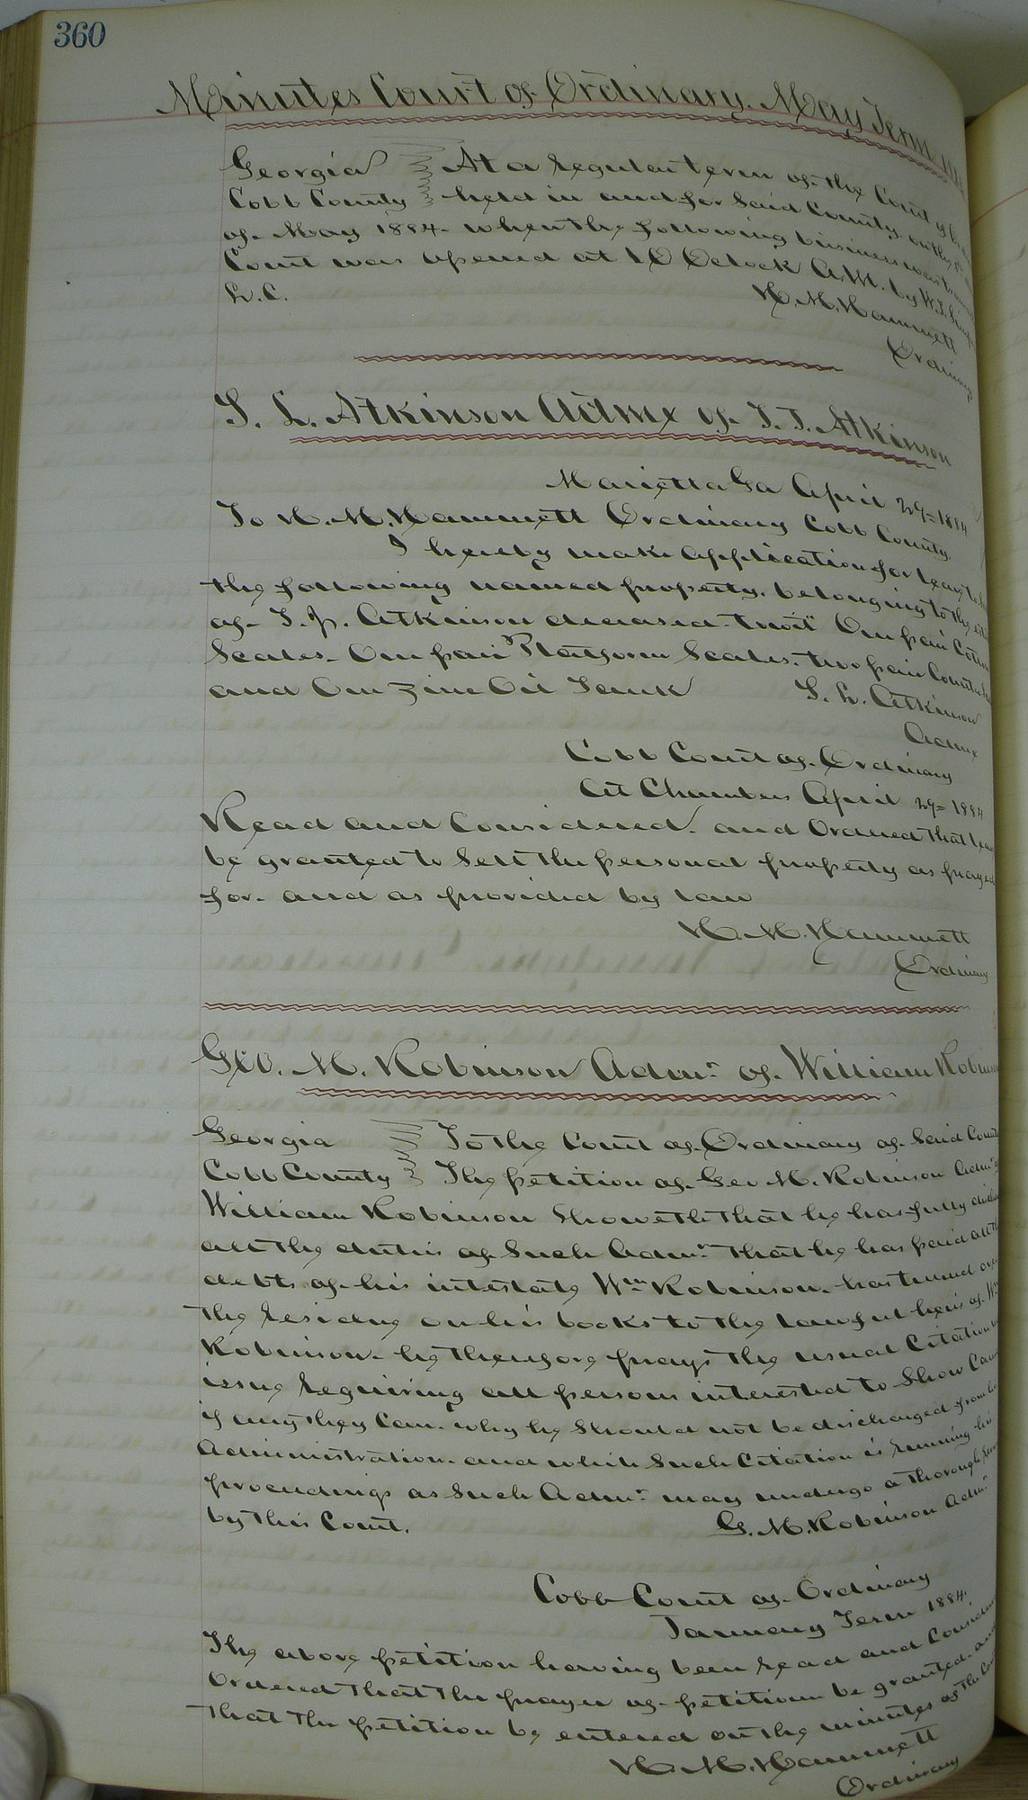 360
Minutes Court of Ordinary, May Term
Georgia At a regular term of the Court of
Cobb County held in and for said County, on the
of May 1884. when the following business was
Court was opened at 10 Oclock A.M. by W.
L.C. H. M. Hammett
Ordinary
S. L. Atkinson Admx of T. J. Atkinson
Marietta Ga April 29= 1884
To H. M. Hammett Ordinary Cobb County.
I hereby make application for leave to
the following named property. belonging to the
of T. J. Atkinson deceased. towit One pair Cotton
Scales. One pair Platform Scales. two pair
and One Zinc Oil Tank S. L. Atkinson
Admx
Cobb Court of Ordinary
At Chambers April 29= 1884
Read and Considered. and Ordered that leave
be granted to sell the personal property as prayed
for. and as provided by law
H. M. Hammett
Ordinary
Geo. M. Robinson Admr. of William Robinson
Georgia To the Court of Ordinary of said County
Cobb County The petition of Geo M. Robinson Admr
William Robinson Showeth that he has fully
all the duties of such Admr. that he has paid all the
debts of his intestate Wm Robinson. has turned over
the residue on his books to the lawful heirs of Wm
Robinson. he therefore prays the usual Citation
issue requiring all persons interested to Show Cause
if any they Can. why he should not be discharged from
Administration. and while such Citation is running his
proceedings as such Admr. may undergo a thorough
by this Court. G. M. Robinson Admr.
Cobb Court of Ordinary
January Term 1884.
The above petition having been read and Considered
Ordered that the prayer of petition be granted. and
that the petition be entered on the minutes of the
H. M. Hammett
Ordinary